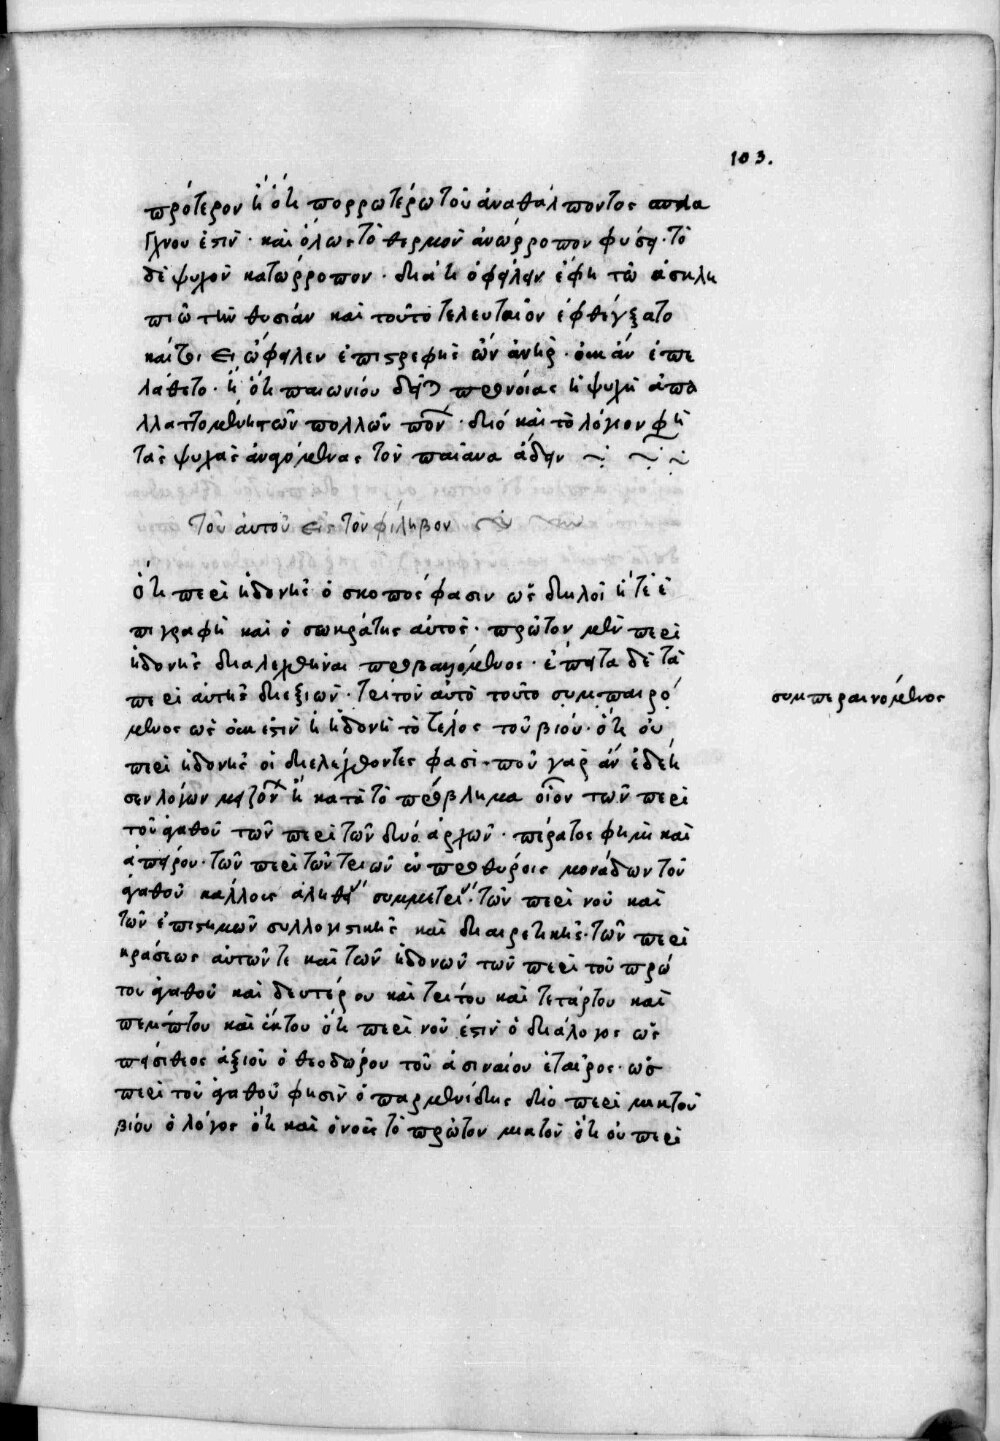 103.
πρότερον ἢ ὅτι πορρωτέρω τοῦ ἀναθάλποντος σπλα
γχνου ἐστὶν· καὶ ὅλως τὸ θερμὸν ἀνώρροπον φύσει· τὸ
δὲ ψυχρὸν κατώρροπον· διὰ τί ὀφείλειν ἔφη τῶ ἀσκλη
πιῶ τὴν θυσίαν καὶ τοῦτο τελευταῖον ἐφθέγξατο
καίτοι εἰ ὤφειλεν ἐπιστρεφὴς ὢν ἀνὴρ· οὐκ ἂν ἐπε
λάθετο· ἢ ὅτι παιωνίου δεῖται προνοίας ἡ ψυχὴ ἀπα
λλαττομένη τῶν πολλῶν πόνων· διό καὶ τὸ λόγιον φησὶ
τὰς ψυχὰς ἀναγομένας τὸν παιᾶνα ἄδειν
Τοῦ αὐτοῦ εἰς τὸν φίληβον
Ὅτι περὶ ἡδονῆς ὁ σκοπός φασιν ὡς δηλοῖ ἥ τε ἐ
πιγραφὴ καὶ ὁ σωκράτης αὐτὸς· πρῶτον μὲν περὶ
ἡδονῆς διαλεχθῆναι προβαλόμενος· ἔπειτα δὲ τὰ
περὶ αὐτῆς διεξιὼν· τρίτον αὐτὸ τοῦτο συμπαιρό
μενος ὡς οὐκ ἐστὶν ἡ ἡδονὴ τὸ τέλος τοῦ βίου· ὅτι οὐ
συμπεραινόμενος
περὶ ἡδονῆς οἱ διελέγχοντες φασὶ· ποῦ γὰρ ἂν ἐδέη
σεν λόγων μειζόνων ἢ κατὰ τὸ πρόβλημα οἷον τῶν περὶ
τοῦ ἀγαθοῦ τῶν περὶ τῶν δυό ἀρχῶν· πέρατος φημὶ καὶ
ἀπείρου· τῶν περὶ τῶν τριῶν ἐν προθύροις μονάδων τοῦ
ἀγαθοῦ κάλλους ἀληθείας συμμετρίας· τῶν περὶ νοῦ καὶ
τῶν ἐπιστημῶν συλλογιστικῆς καὶ διαιρετικῆς· τῶν περὶ
κράσεως αὐτῶν τε καὶ τῶν ἡδονῶν τῶν περὶ τοῦ πρώ
του ἀγαθοῦ καὶ δευτέρου καὶ τρίτου καὶ τετάρτου καὶ
πέμπτου καὶ ἕκτου ὅτι περὶ νοῦ ἐστὶν ὁ διάλογος ὡς
πεισίθεος ἀξιοῦ ὁ θεοδώρου τοῦ ἀσιναίου ἑταῖρος· ὡς
περὶ τοῦ ἀγαθοῦ φησὶν ὁ παρμενίδης διὸ περὶ μικτοῦ
βίου ὁ λόγος ὅτι καὶ ὁ νοῦς τὸ πρῶτον μικτὸν ὅτι οὐ περὶ